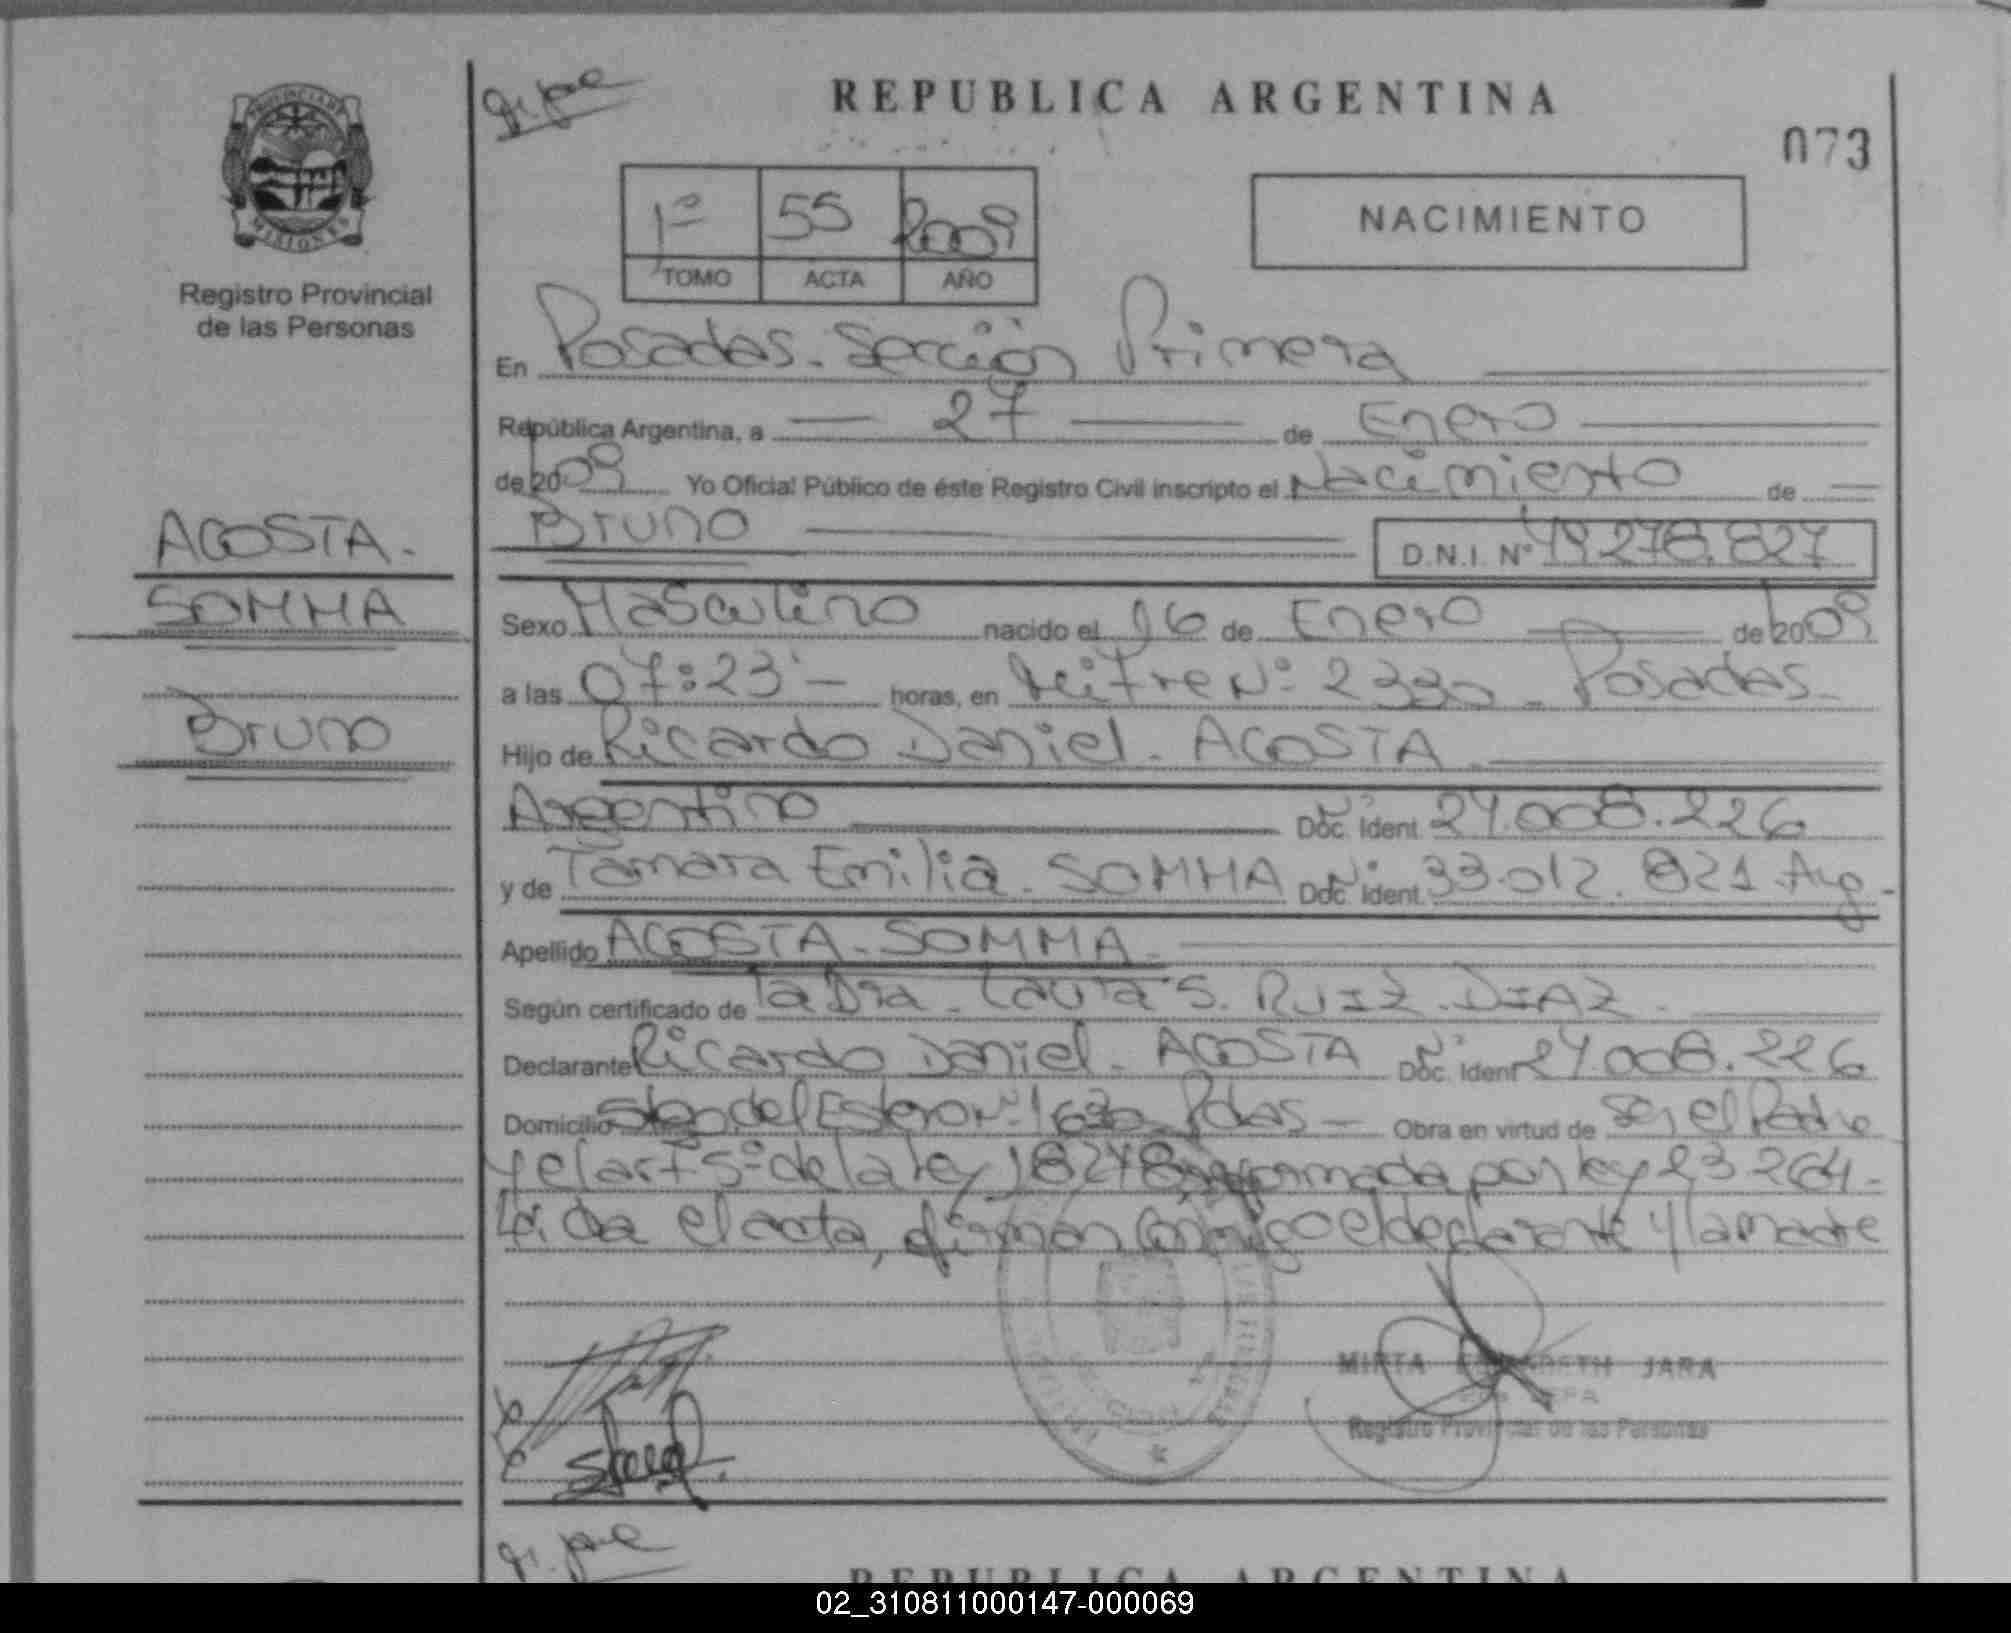 PROVINCIA DE
MISIONES
Registro Provincial
de las Personas
ACOSTA-
SOMMA
Bruno
REPUBLICA ARGENTINA
073
1º 55 2009
TOMO ACTA AÑO
NACIMIENTO
En Posadas. Sección Primera
República Argentina, a 27 de Enero
de 2009 Yo Oficial Público de éste Registro Civil inscripto el Nacimiento de
Bruno D.N.I. Nº 49.278.827
Sexo Masculino nacido el 16 de Enero de 2009
a las 07:23 - horas, en Mitre Nº: 2330 - Posadas-
Hijo de Ricardo Daniel - ACOSTA
Argentino Doc. Ident. Nº 24.008.226
y de Tamara Emilia - SOMMA Doc. Ident. Nº 33.012.821 Arg -
Apellido ACOSTA - SOMMA -
Según certificado de la Dra - Laura S. RUIZ - DIAZ -
Declarante Ricardo Daniel - ACOSTA Doc. Ident. Nº 24.008.226
Domicilio Stgo del Estero Nº: 1630 - Pdas - Obra en virtud de Ser el Padre
y el art 5º de la ley 18248 reformada por ley 23264 -
Leida el acta, firman conmigo el declarante y la madre
MIRTA ELIZABETH JARA
Registro Provincial de las Personas
REPUBLICA ARGENTINA
02_310811000147-000069